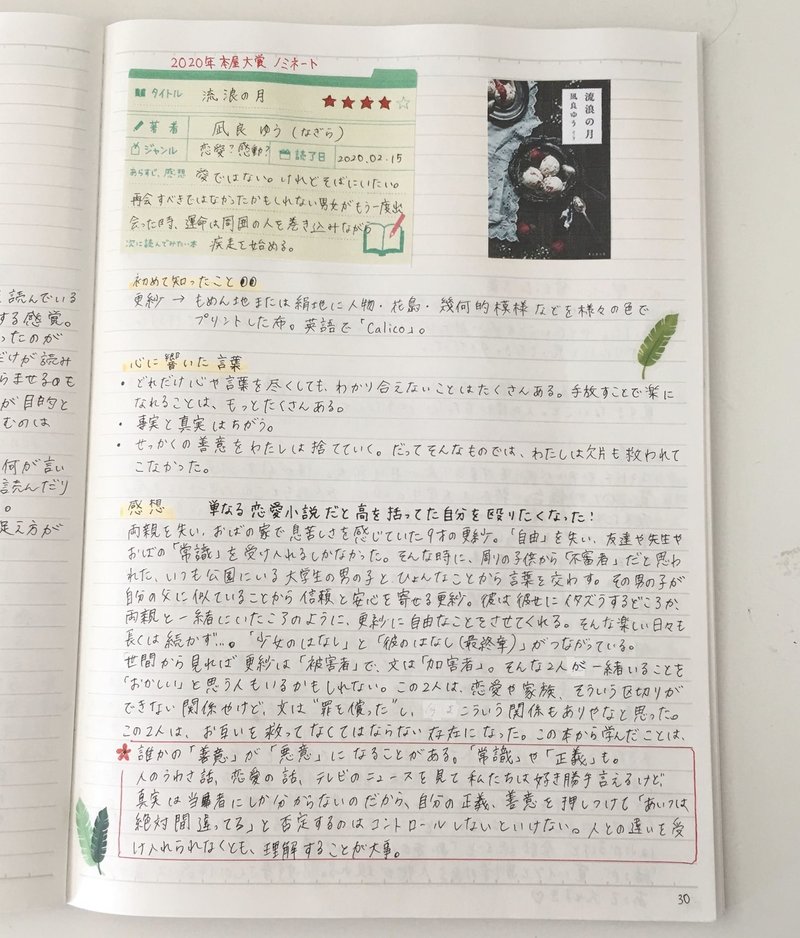 2020年本屋大賞ノミネート
タイトル 流浪の月
著者 凪良 ゆう (なぎら)
ジャンル 恋愛?感動? 読了日 2020.02.15
あらすじ、感想 愛ではない。けれどそばにいたい。
再会すべきではなかったかもしれない男女がもう一度出
会った時、運命は周囲の人を巻き込みながら
次に読んでみたい本 疾走を始める。
流浪の月
凪良ゆう
初めて知ったこと
更紗 → もめん地または絹地に人物・花鳥・幾何的模様などを様々の色で
プリントした布。英語で「Calico」。
心に響いた言葉
・どれだけ心や言葉を尽くしても、わかり合えないことはたくさんある。手放すことで楽に
なれることは、もっとたくさんある。
・事実と真実はちがう。
・せっかくの善意をわたしは捨てていく。だってそんなものでは、わたしは欠片も救われて
こなかった。
感想 単なる恋愛小説だと高を括ってた自分を殴りたくなった!
両親を失い、おばの家で息苦しさを感じていた9才の更紗。「自由」を失い、友達や先生や
おばの「常識」を受け入れるしかなかった。そんな時に、周りの子供から「不審者」だと思わ
れた、いつも公園にいる大学生の男の子と、ひょんなことから言葉を交わす。その男の子が
自分の父に似ていることから信頼と安心を寄せる更紗。彼は彼女にイタズラするどころか、
両親と一緒にいたころのように、更紗に自由なことをさせてくれる。そんな楽しい日々も
長くは続かず…。「少女のはなし」と「彼のはなし(最終章)」がつながっている。
世間から見れば更紗は「被害者」で、文は「加害者」。そんな2人が一緒いることを
「おかしい」と思う人もいるかもしれない。この2人は、恋愛や家族、そういう区切りが
できない関係やけど、文は“罪を償った”し、こういう関係もありやなと思った。
この2人は、お互いを救ってなくてはならない存在になった。この本から学んだことは、
誰かの「善意」が「悪意」になることがある。「常識」や「正義」も。
人のうわさ話、恋愛の話、テレビのニュースを見て私たちは好き勝手言えるけど、
真実は当事者にしか分からないのだから、自分の正義、善意を押しつけて「あいつは
絶対間違ってる」と否定するのはコントロールしないといけない。人との違いを受
け入れられなくとも、理解することが大事。
30
読んでいる
する感覚。
ったのが
だけが読み
らませるのも
が目的と
むのは
何が言い
読んだり
。
捉え方が